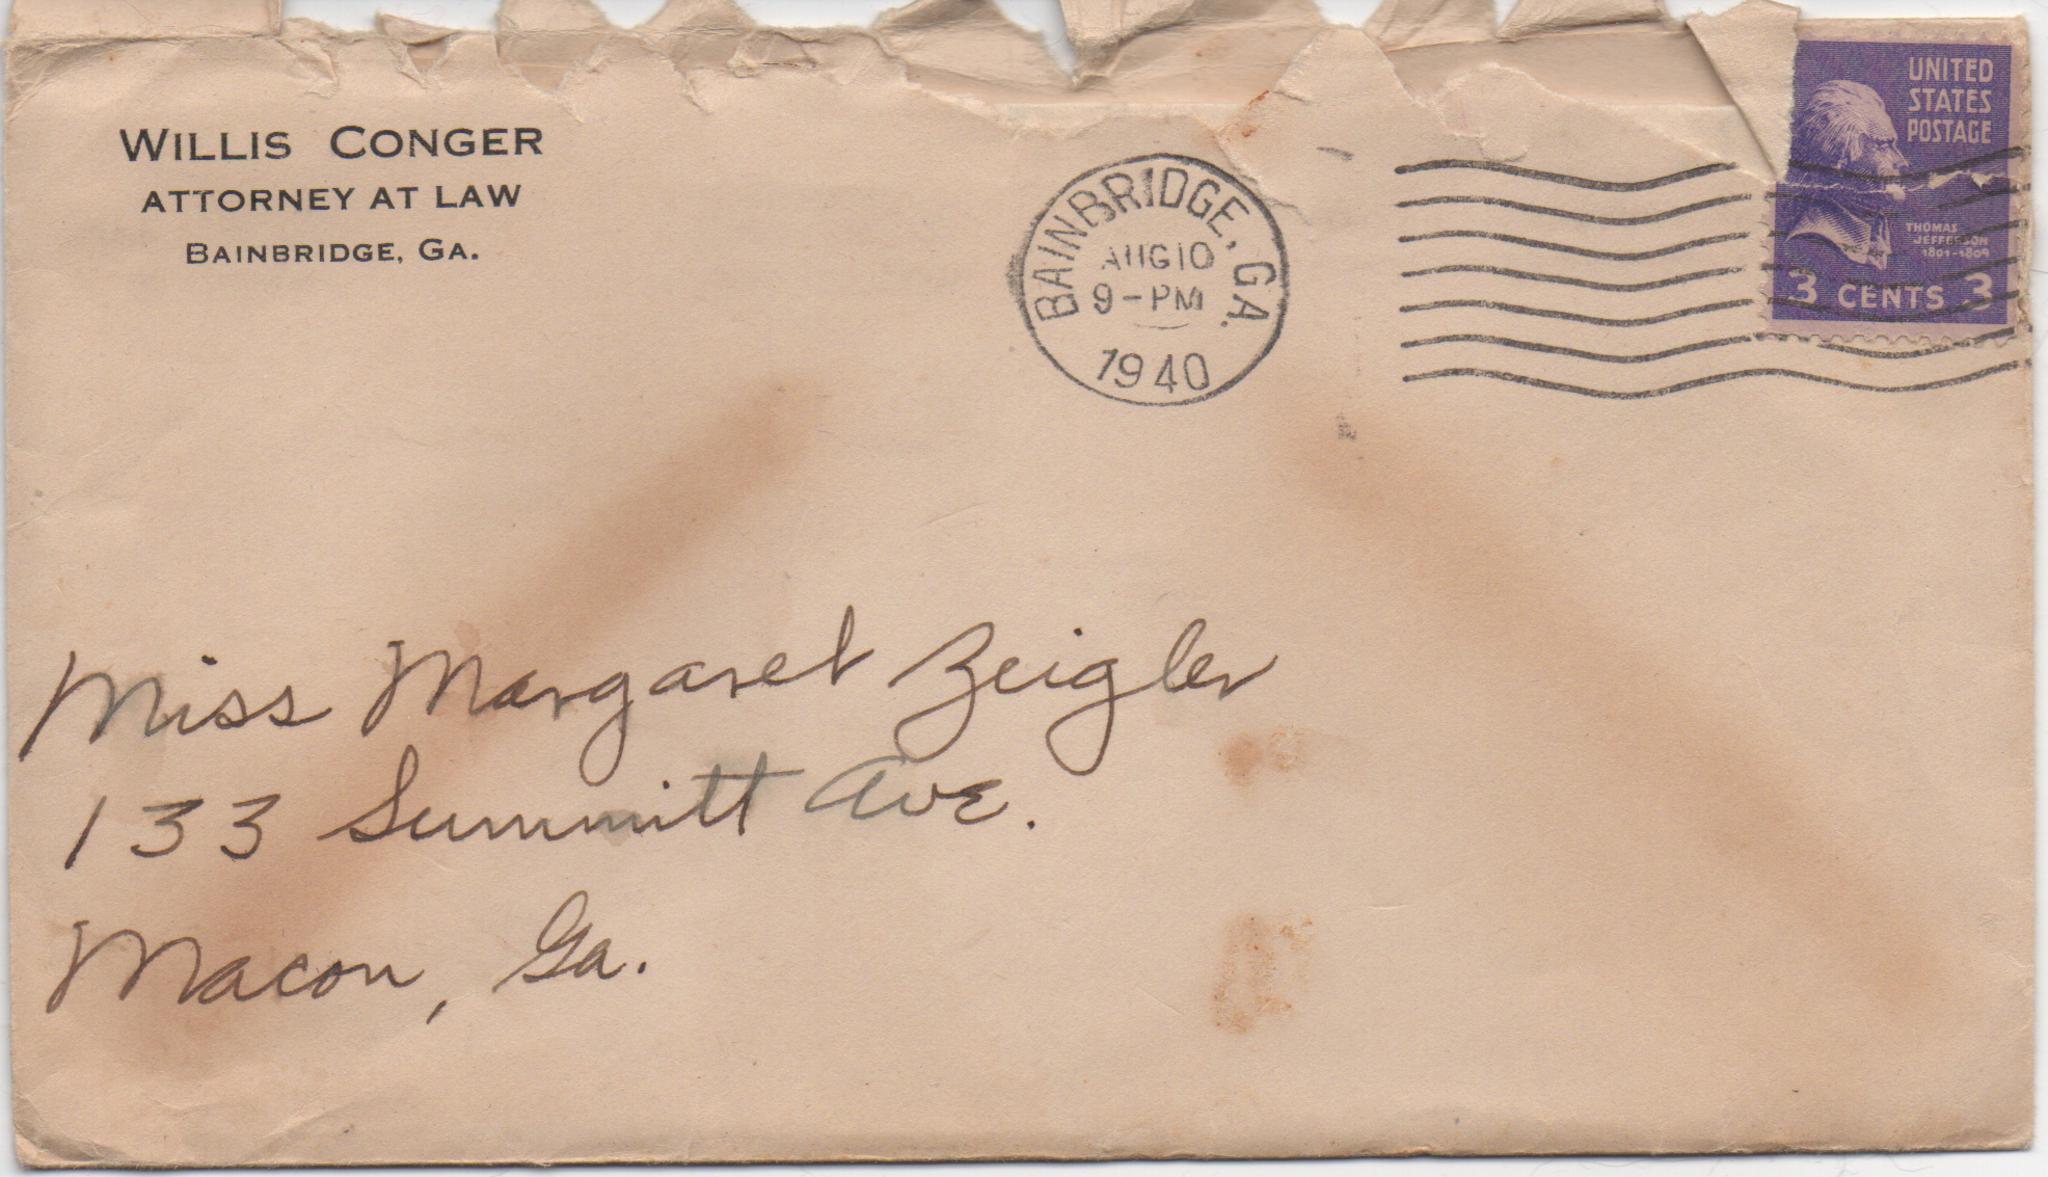 WILLIS CONGER
ATTORNEY AT LAW
BAINBRIDGE, GA.
BAINBRIDGE, GA.
AUG 10
9-PM
1940
UNITED
STATES
POSTAGE
THOMAS
JEFFERSON
1801-1809
3 CENTS 3
Miss Margaret Zeigler
133 Summitt Ave.
Macon, Ga.